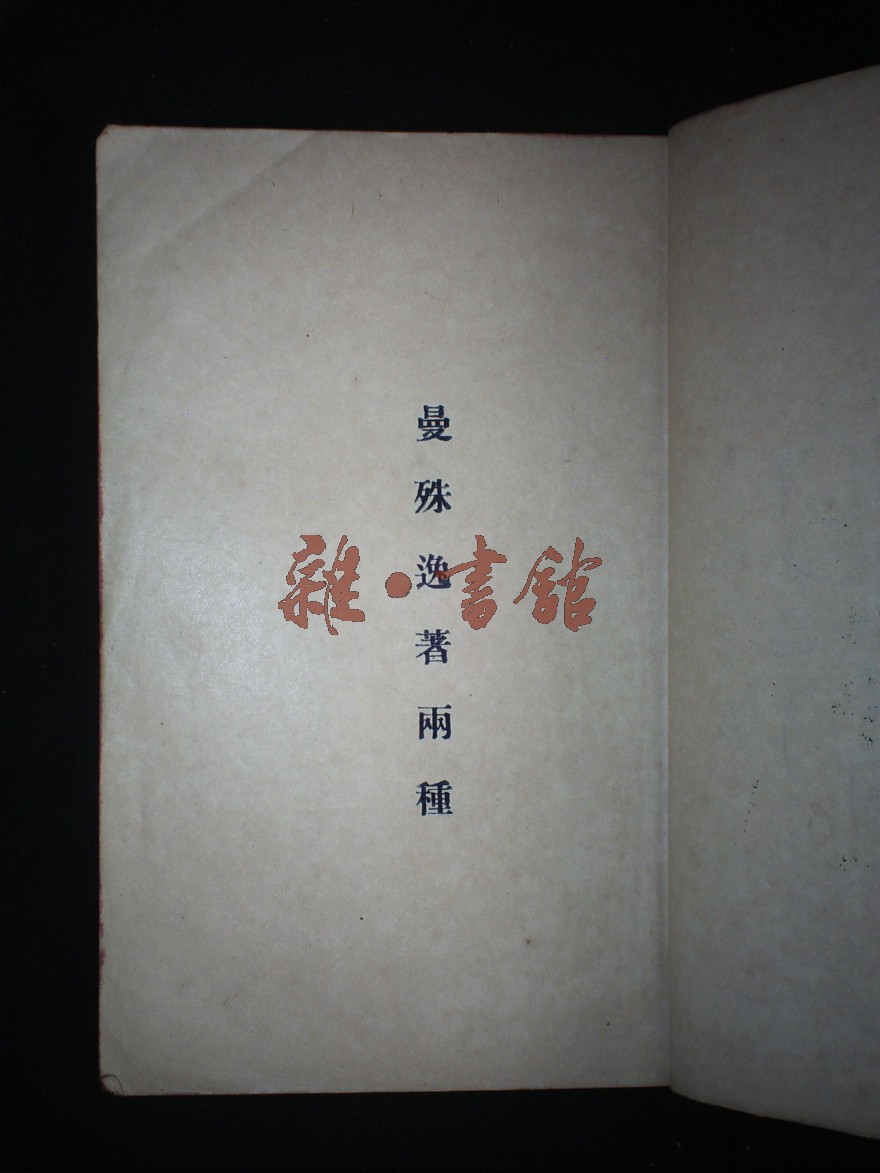 曼殊逸著兩種
雜·書館